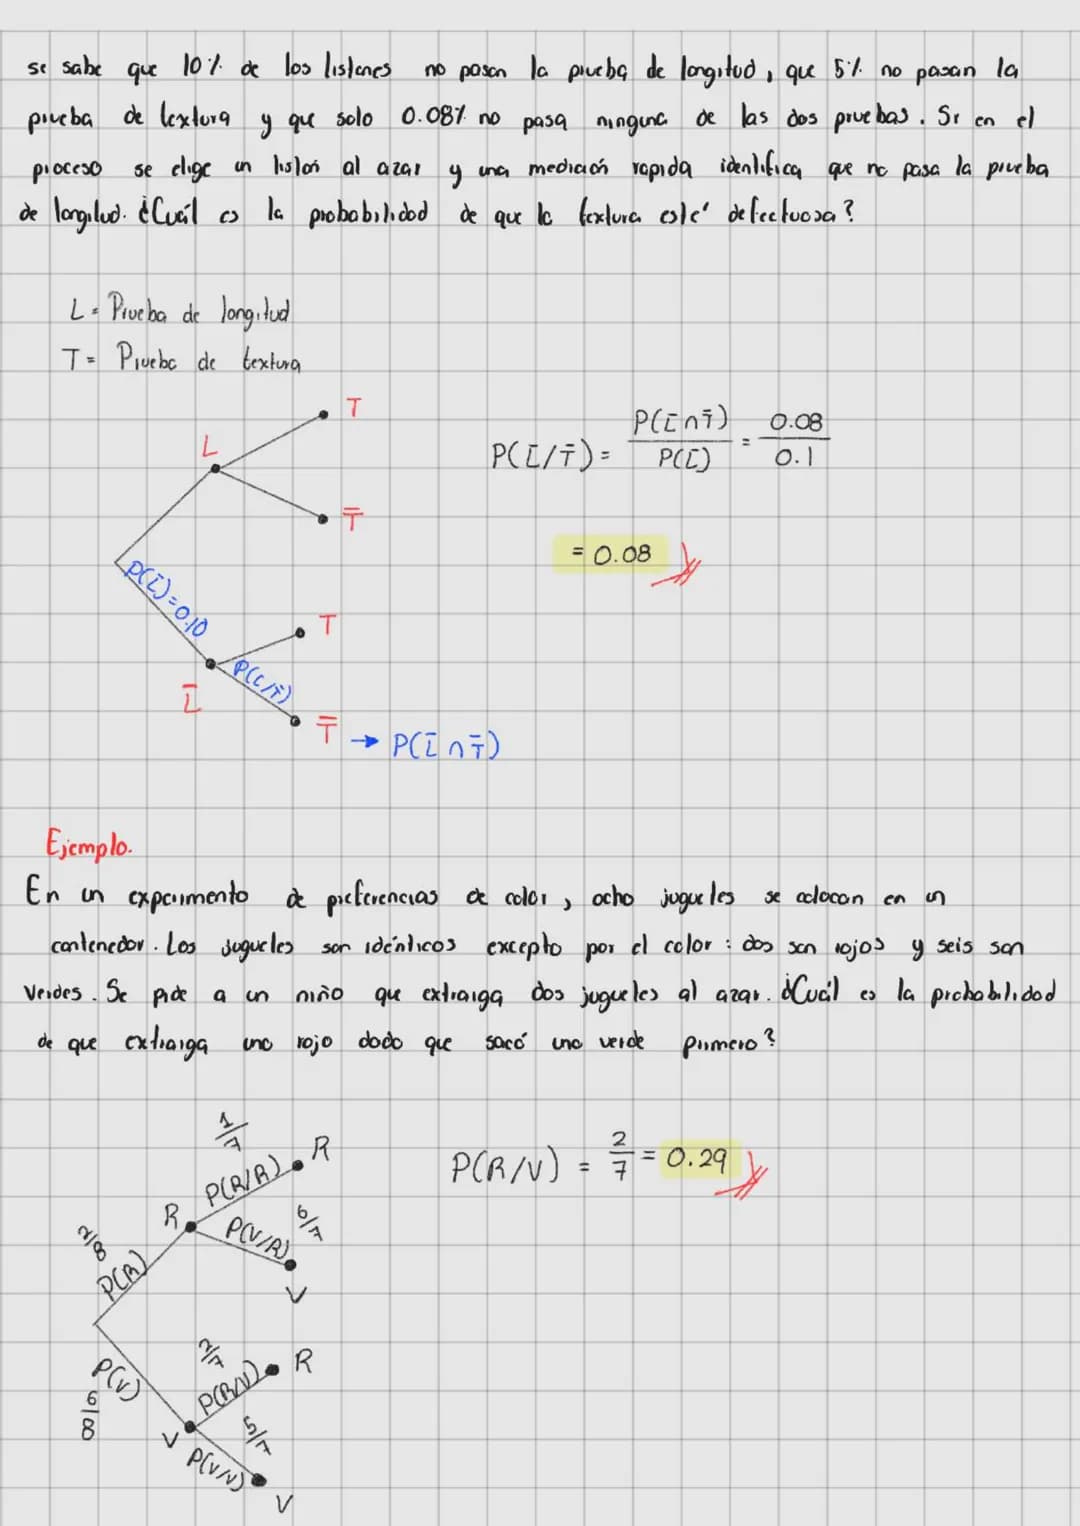 se sabe que 10% de los listones no pasan la prueba de longitud, que 5% no pasan la
prueba de textura y que solo 0.08% no pasa ninguna de las dos pruebas. Si en el
proceso se elige un listón al azar y una medición rapida identifica que no pasa la prueba
de longitud. ¿Cuál es la probabilidad de que la textura esté defectuosa?
L = Prueba de longitud
T = Prueba de textura
T
L
T̅
P(L̅)=0.10
T
P(L/T̅)
L̅
T̅ → P(L̅ ∩ T̅)
P(L̅/T̅) = P(L̅∩T̅) / P(L̅) = 0.08 / 0.1
= 0.08
Ejemplo.
En un experimento de preferencias de color, ocho juguetes se colocan en un
contenedor. Los juguetes son idénticos excepto por el color: dos son rojos y seis son
Verdes. Se pide a un niño que extraiga dos juguetes al azar. ¿Cuál es la probabilidad
de que extraiga uno rojo dado que sacó uno verde primero?
1/7
P(R/R) R
R
P(V/R) 6/7
V
2/8
P(R)
P(V)
6/8
2/7
P(R/V) R
V
5/7
P(V/V)
V
P(R/V) = 2/7 = 0.29